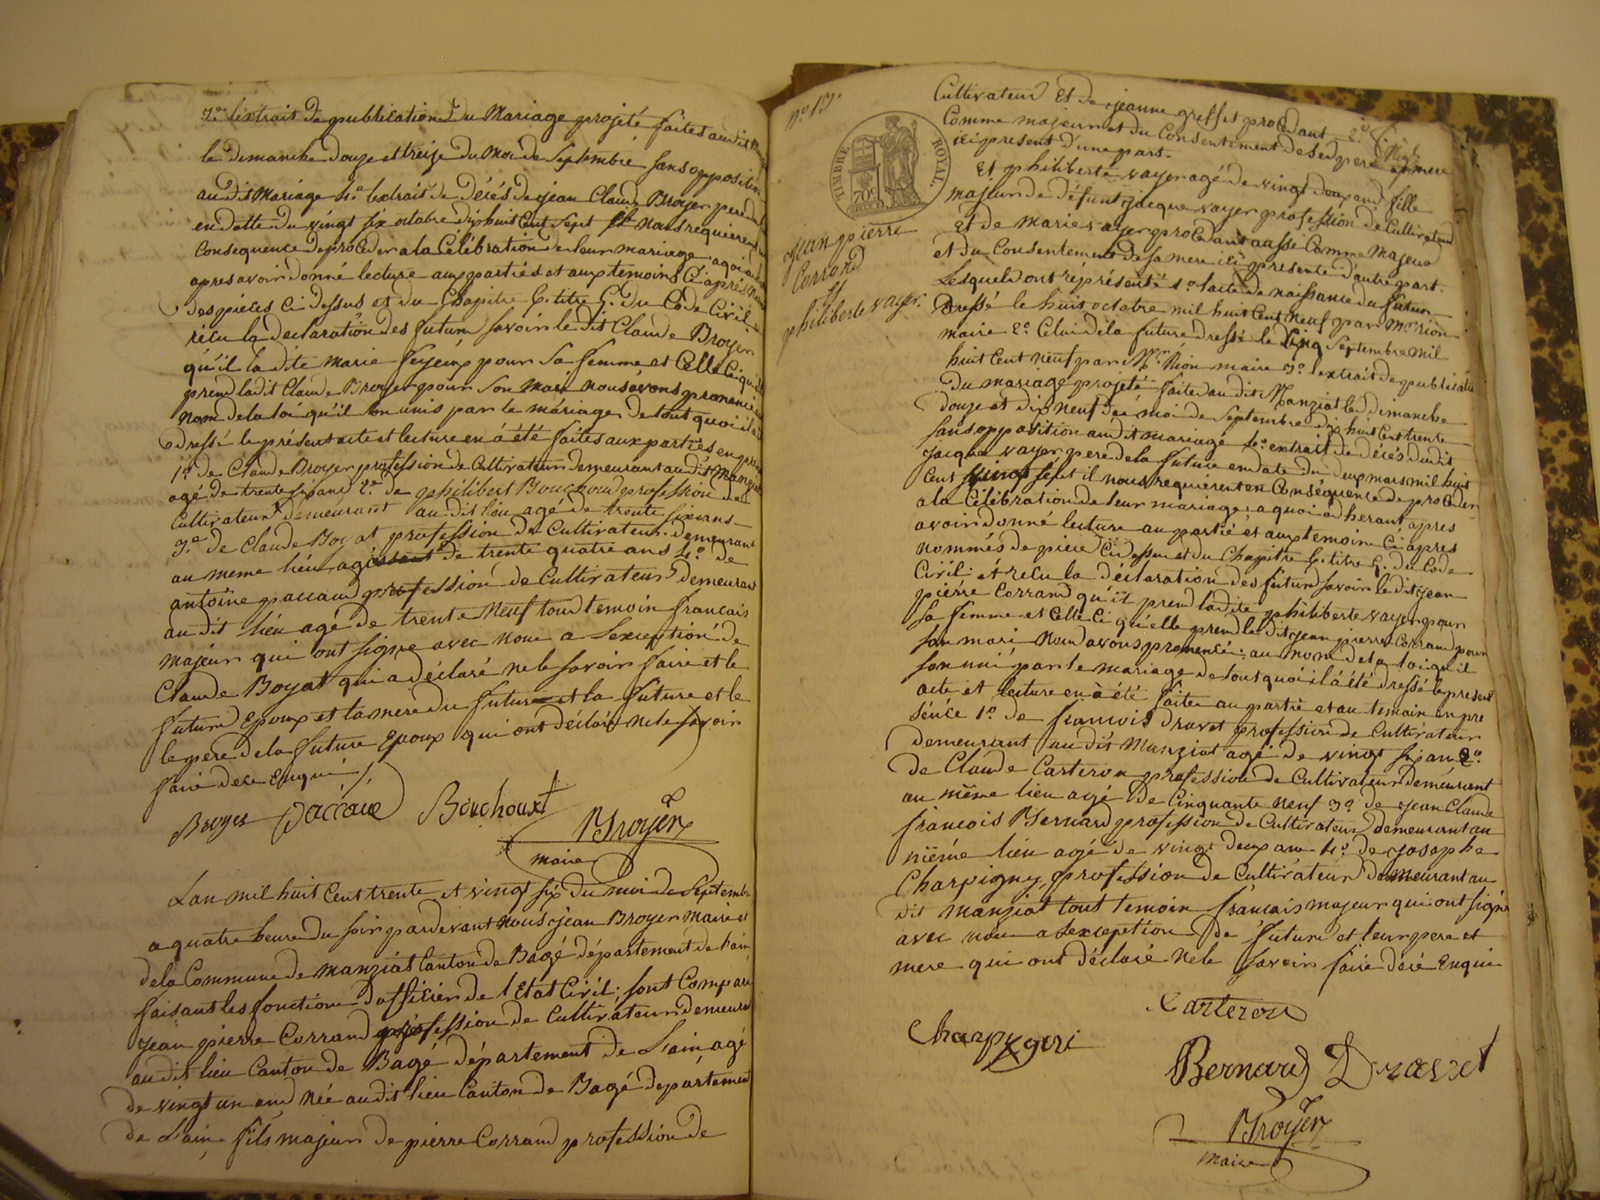 3.o l'extrait de publication du Mariage projeté faites audit
le dimanche douze et treize du Moi de Septembre sans opposition
audit Mariage 4.o l'extrait de Décés de jean Claude Broyer pere
en datte du vingt six octobre dix huit Cent Sept et Nous requierent
Consequence de proceder a la Célébration de leur mariage a quoi
apres avoir donné lecture aux partiés et aux temoins Ci après
des pièces Ci dessus et du Chapitre 6. titre 5. du Code Civil
récu la declaration des futurs savoir le dit Claude Broyer
qu'il la dite Marie feyeux pour Sa femme et Celle Ci qu'elle
prend ladit Claude Broyer pour Son Mari nous avons prononcé
nom de la loi qu'il son unis par le mariage de tout quoi il a
dressé le présent acte et lecture en á été faites aux partiés en
1.o de Claude Broyer profession de Cultivateur demeurant au dit Manziat
agé de trente six ans 2.o de philibert Bouchoux profession de
Cultivateur demeurant au dit lieu agé de trente six ans
3.o de Claude Boyat profession de Cultivateur demeurant
au meme lieu agé de trente quatre ans 4.o de
antoine paccaud profession de Cultivateur demeurant
au dit lieu agé de trente Neuf tous temoin francais
majeur qui ont signe avec nous a l'exception de
Claude Boyat qui a déclaré ne le savoir faire et le
futur Epoux et la mere du futur et la future et le
le pere de la future Epoux qui ont déclaré ne le savoir
faire de ce Enqui
Broyer Paccaud Bouchoux
Broyer
maire
L'an mil huit Cent trente et vingt six du moi de Septembre
a quatre heure du soir pardevant nous jean Broyer Maire et
de la Commune de manziat Canton de Bagé département de l'ain
faisant les fonction d'officier de l'Etat Civil sont Comparu
jean pierre Corrand profession de Cultivateur demeurant
au dit lieu Canton de Bagé département de L'ain agé
de vingt un and Née au dit lieu Canton de Bagé département
de L'ain fils majeur de pierre Corrand profession de
n.o 13.
TIMBRE ROYAL
70 c
jean pierre
Corrand
et
philiberte vayer
Cultivateur Et de jeanne greffet procedant
Comme majeur et du Consentement de Sed pere et mere
ici present d'une part.
Et philiberte vayer agé de vingt doux and fille
majeur de défunt jacque vayer profession de Cultivateur
Et de Marie vayer procedant aussi Comme Majeur
et du Consentement de sa mere ici presente d'autre part.
Lesqueld ont réprésenté 1.o l'acte de naissance du futur
Dressé le huit octobre mil huit Cent Neuf par Mr Rion
maire 2.o Celui de la future dressé le Cinq Septembre Mil
huit Cent neuf par Mr Rion maire 3.o l'extrait de publication
du mariage projeté faite au dit Manziat le Dimanche
douze et dix neuf du moi de Septembre dix huit Cent trente
sans opposition au dit mariage 4.o extrait de décés du dit
jacque vayer pere de la future en date du deux mars mil huit
Cent sept il nous requierent en Conséquence de proceder
a la Célébration de leur mariage a quoi adherant apres
avoir donné lecture au partié et aux temoin Ci après
nommés de piece Ci dessus et du Chapitre 6. titre 5. du Code
Civil et reçu la déclaration des futur savoir le dit jean
pierre Corrand qu'il prend la dite philiberte vayer pour
Sa femme et Celle Ci qu'elle prend le dit jean pierre Corrand pour
son mari Noud avons prononcé au nom de la loi qu'il
son uni par le mariage de tout quoi il á été dressé le present
acte et lecture en à été faite au partié et au temoin en pre
sence 1.o de francois dravet profession de Cultivateur
demeurant au dit Manziat agé de vingt six ans 2.o
de Claude Carteron profession de Cultivateur demeurant
au même lieu agé de Cinquante neuf 3.o de jean Claude
francois Bernard profession de Cultivateur demeurant au
même lieu agé de vingt deux an 4.o de josephe
Charpigny profession de Cultivateur demeurant au
dit Manziat tout temoin francais majeur qui ont signé
avec nous a l'exception de futur et leur pere et
mere qui ont déclaré ne le savoir faire de ce Enqui
Carteron
Charpygeni
Bernard Dravet
Broyer
maire